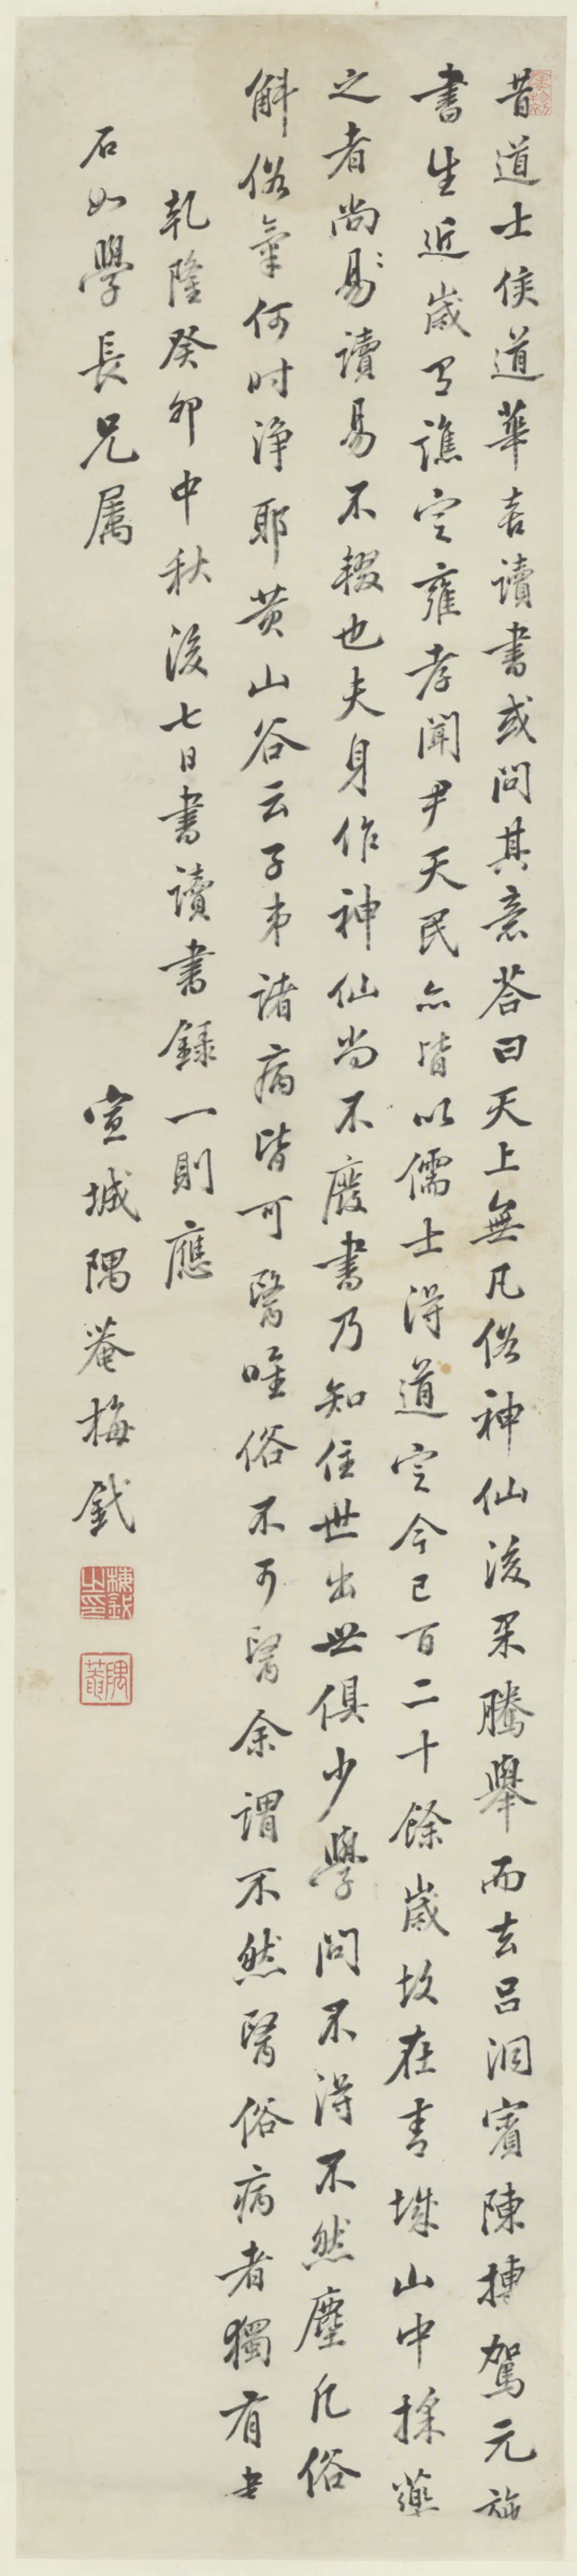 昔道士侯道華喜讀書或問其意荅曰天上無凡俗神仙後果騰舉而去呂洞賓陳摶駕元施
書生近歲有譙定雍孝聞尹天民亦皆以儒士得道定今已百二十餘歲故在青城山中採藥
之者尚易讀易不輟也夫身作神仙尚不廢書乃知住世出世俱少學問不得不然塵凡俗
斛俗氣何时淨耶黃山谷云子弟諸病皆可醫唯俗不可醫余謂不然醫俗病者獨有書
乾隆癸卯中秋後七日書讀書錄一則應
石如學長兄属
宣城隅菴梅鉽